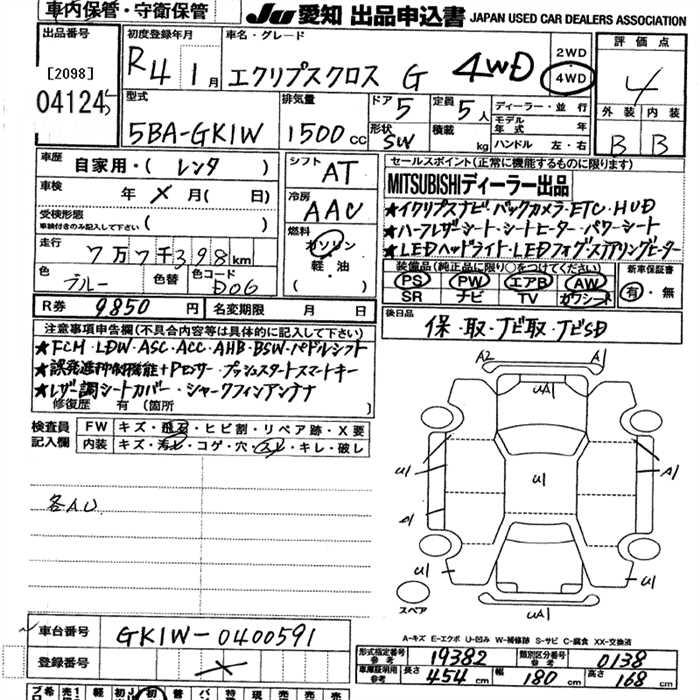 車内保管・守衛保管
JU 愛知 出品申込書 JAPAN USED CAR DEALERS ASSOCIATION
出品番号
[2098]
04124
初度登録年月
R4 1月
車名・グレード
エクリプスクロス G 4WD
2WD
4WD
評価点
4
外装 内装
B B
型式
5BA-GK1W
排気量
1500cc
ドア 5
形状 SW
定員 5人
積載 kg
ディーラー・並行
モデル年式 年
ハンドル 左・右
車歴
自家用・( レンタ )
車検 年 × 月( 日)
受検形態
車検付きのみ記入して下さい ( )
走行 7万7千398km
色 ブルー 色替 色コード D06
シフト AT
冷房 AAC
燃料
ガソリン
軽・油
( )
セールスポイント(正常に機能するものに限ります)
MITSUBISHIディーラー出品
★イクリプスナビ・バックカメラ・ETC・HUD
★ハーフレザーシート・シートヒーター・パワーシート
★LEDヘッドライト・LEDフォグ・ステアリングヒーター
装備品(純正品に限り○をつけてください)
PS PW エアB AW
SR ナビ TV カワシート
新車保証書
有・無
R券 9850円 名変期限 月 日
後日品
保・取・ナビ取・ナビSD
注意事項申告欄(不具合内容等は具体的に記入して下さい)
★FCM・LDW・ASC・ACC・AHB・BSW・パドルシフト
★誤発進抑制機能+Pセンサー・プッシュスタートスマートキー
★レザー調シートカバー・シャークフィンアンテナ
修復歴 有 (箇所 )
検査員記入欄
FW キズ・飛石・ヒビ割・リペア跡・X要
内装 キズ・汚れ・コゲ・穴・スレ・キレ・破し
各AU
A2 A1
UA1
U1 U1 A1
A1
U1 U1
UA1
スペア
A-キズ E-エクボ U-凹み W-補修跡 S-サビ C-腐食 XX-交換済
車台番号 GK1W-0400591
登録番号 ×
形式指定番号 参考 19382
類別区分番号 参考 0138
車庫証明用 参考 長さ 454cm 幅 180cm 高さ 168cm